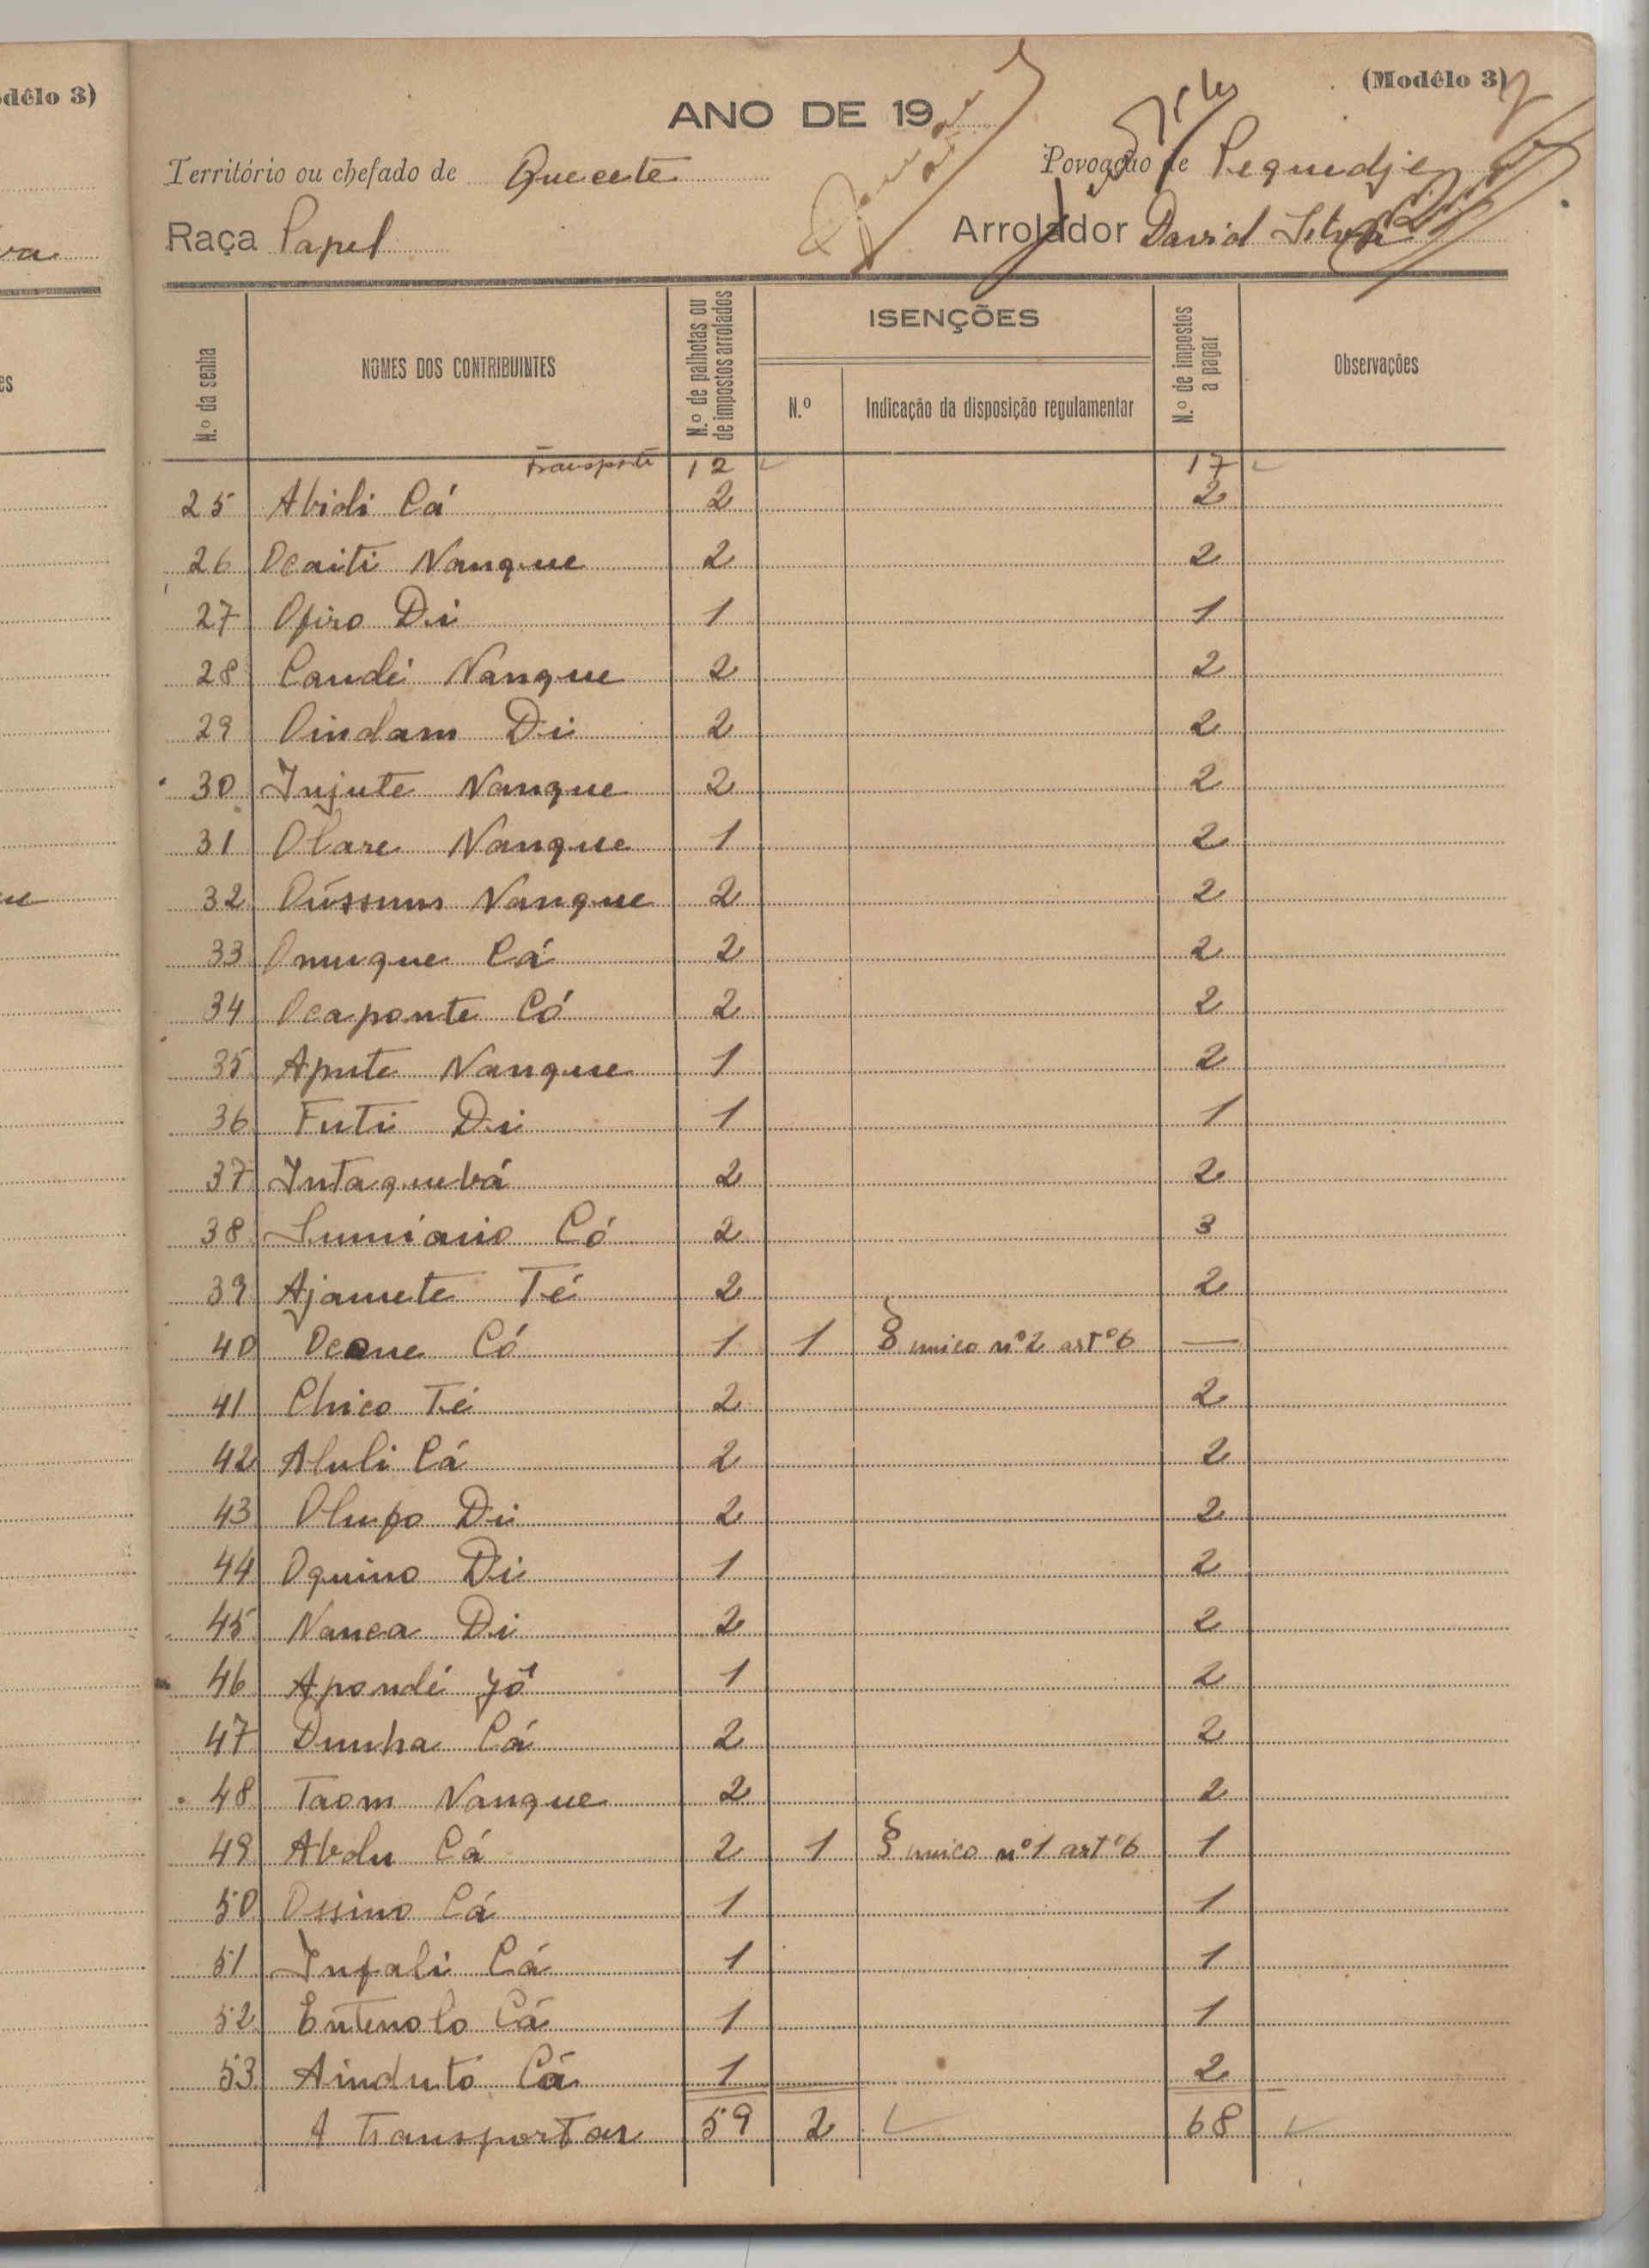 délo 3)
(Modêlo 3)
ANO DE 19
Território ou chefado de Quecete
Povoação de Pequedje
Raça Papel
Arrolador David Silva
N.º da senha
NOMES DOS CONTRIBUINTES
N.º de palhotas ou de impostos arrolados
ISENÇÕES
N.º
Indicação da disposição regulamentar
N.º de impostos a pagar
Observações
Transporte 12 17
25 Abidi Cá 2 2
26 Ocaiti Nanque 2 2
27 Ofiro Di 1 1
28 Candé Nanque 2 2
29 Oindam Di 2 2
30 Injute Nanque 2 2
31 Olare Nanque 1 2
32 Nanque 2 2
33 Onuque Cá 2 2
34 Ocaponte Có 2 2
35 Apute Nanque 1 2
36 Futi Di 1 1
37 Intaquebá 2 2
38 Có 2 3
39 Ajamete Té 2 2
40 Ocane Có 1 1 § unico nº 2 artº 6 —
41 Chico Té 2 2
42 Aluli Cá 2 2
43 Olufo Di 2 2
44 Oquino Di 1 2
45 Nanca Di 2 2
46 Apondé Jó 1 2
47 Dunha Cá 2 2
48 Taom Nanque 2 2
49 Abdu Cá 2 1 § unico nº 1 artº 6 1
50 Ossino Cá 1 1
51 Infali Cá 1 1
52 Entenolo Cá 1 1
53 Aindutó Cá 1 2
A Transportar 59 2 68